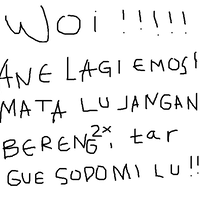 WOi !!!!!
ANE LAGI EMOSI
MATA LU JANGAN
BERENG2x, tar
GUE SODOMI LU !!